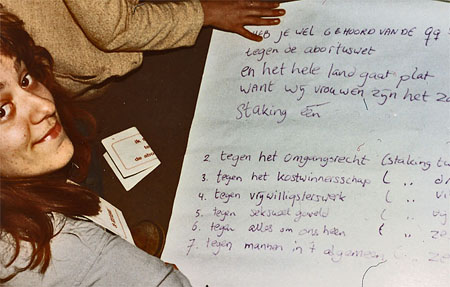 HEB JE WEL GEHOORD VAN DE 99
tegen de abortuswet
en het hele land gaat plat
want wij vrouwen zijn het
Staking één
2 tegen het omgangsrecht (staking
3. tegen het kostwinnersschap ( „
4. tegen vrijwilligsterswerk ( „
5. tegen seksueel geweld ( „
6. tegen alles om ons heen ( „
7. tegen mannen in 't algemeen ( „